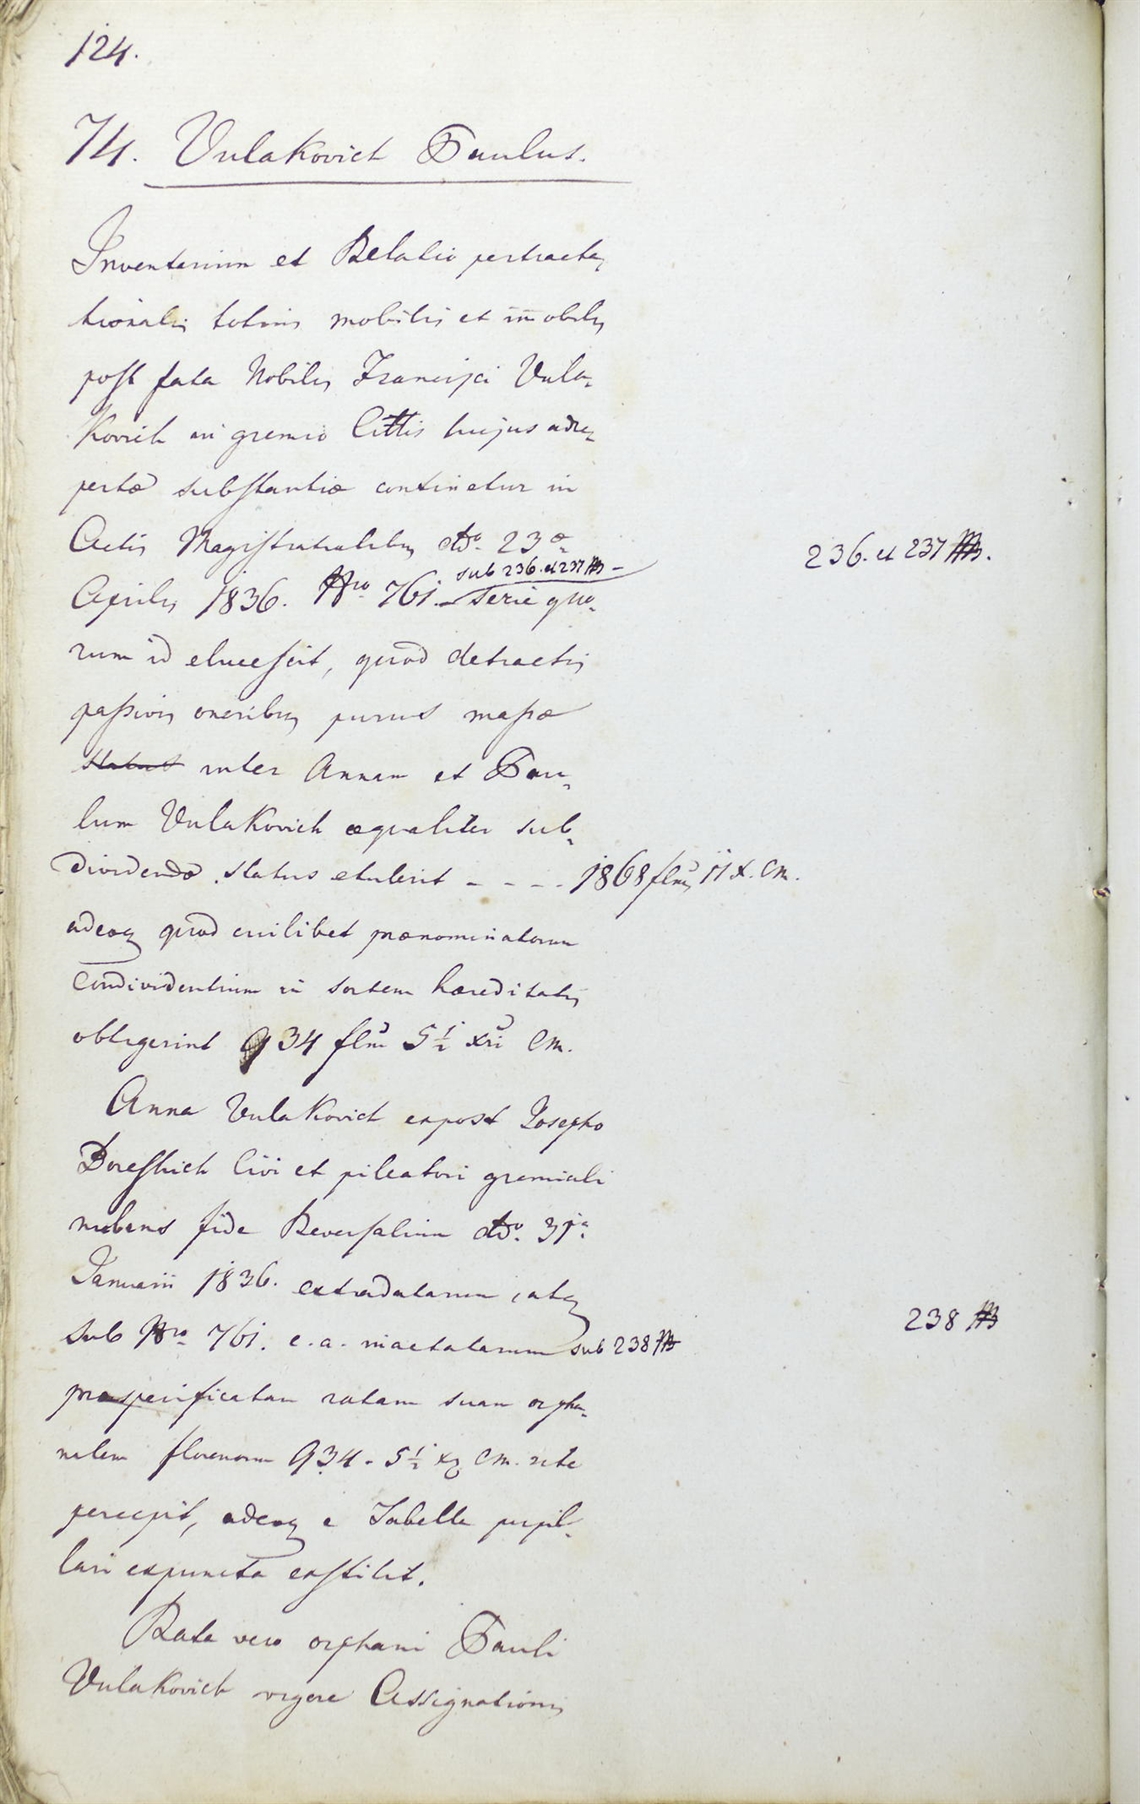 124.
74. Vulakovich Paulus.
Inventarium et Relatio pertracta¬
tionalis totius mobilis et im̄obilis
post fata Nobilis Francisci Vula¬
kovich in gremio Cittis hujus adre¬
pertæ substantiæ continetur in
Actis Magistratualibus ddo. 23a
236. et 237
sub 236. et 237
Aprilis 1836. Nro 761. serie quo¬
rum id elucescit, quod detractis
passivis oneribus purus massæ
status inter Annam et Pau¬
lum Vulakovich æqualiter sub¬
dividendæ status etulerit - - - - 1868 flnos 11 x. Cm.
adeoq quod cuilibet prænominatorum
Condividentium in sortem hæreditatis
obtigerint 934 flni 5½ xri Cm.
Anna Vulakovich expost Josepho
Doreshich Civi et pileatori gremiali
nubens fide Reversalium ddo. 31a
Januarii 1836. extradatarum, atq
sub Nro 761. e. a. inactatarum sub 238
238
præspecificatam ratam suam orpha¬
nalem florenorum 934 - 5½ xr Cm. rite
percepit, adeoq e Tabella pupil¬
lari expuncta exstitit.
Rata vero orphani Pauli
Vulakovich vigore Assignationis